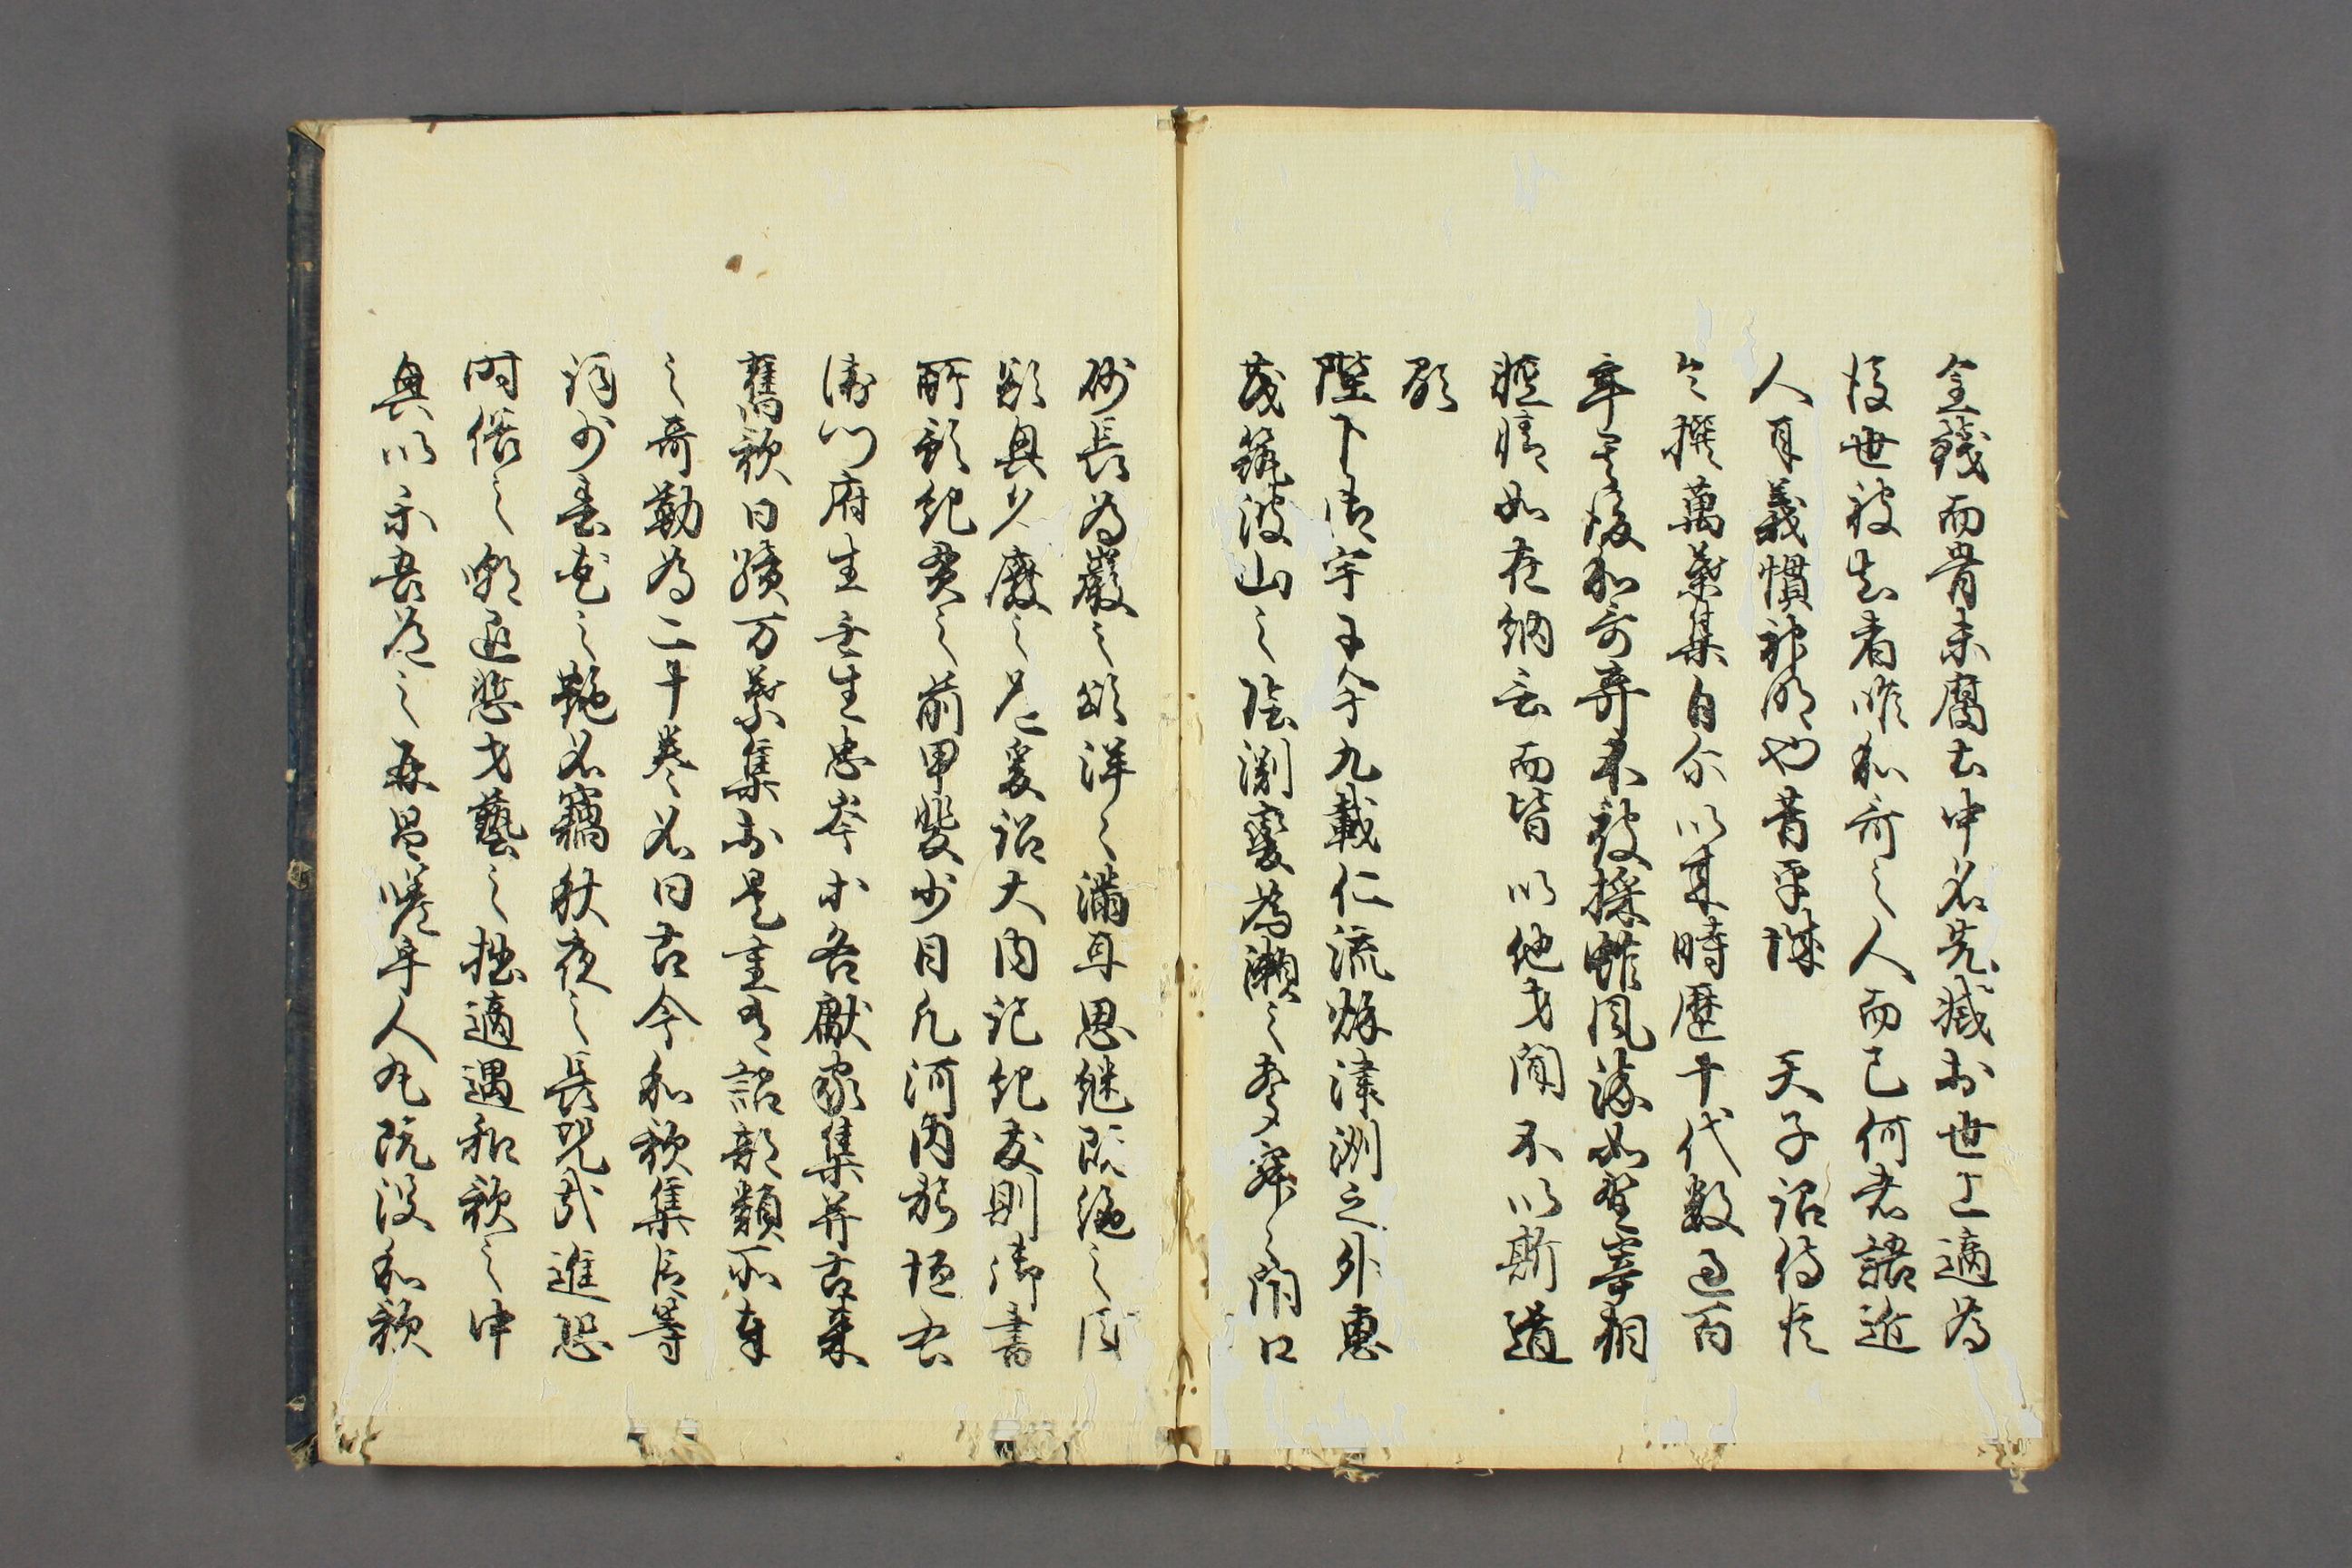 金錢而骨未腐土中名先滅於世上適為
後世被知者唯和哥之人而已何者語近
人耳義慣神明也昔平城 天子詔侍臣
令撰萬葉集自尒以来時歴十代数過百
年其後和哥弃不被採雖風流如野宰相
軽情如在納言而皆以他才聞不以斯道
顕
陛下御宇于今九載仁流秋津洲之外惠
茂筑波山之陰淵變為瀬之聲寂々閇口
砂長為巖之頌洋々滿耳思継既絶之風
欲興久廢之道爰詔大内記紀友則御書
所預紀貫之前甲斐少目凡河内躬恒右
衛門府生壬生忠岑等各獻家集并古来
舊歌曰續万葉集於是重有詔部類所奉
之哥勒為二十巻名曰古今和歌集臣等
詞少春花之艶名竊秋夜之長况哉進恐
時俗之嘲退慙才藝之拙適遇和歌之中
興以示吾道之再昌嗟乎人丸既没和歌